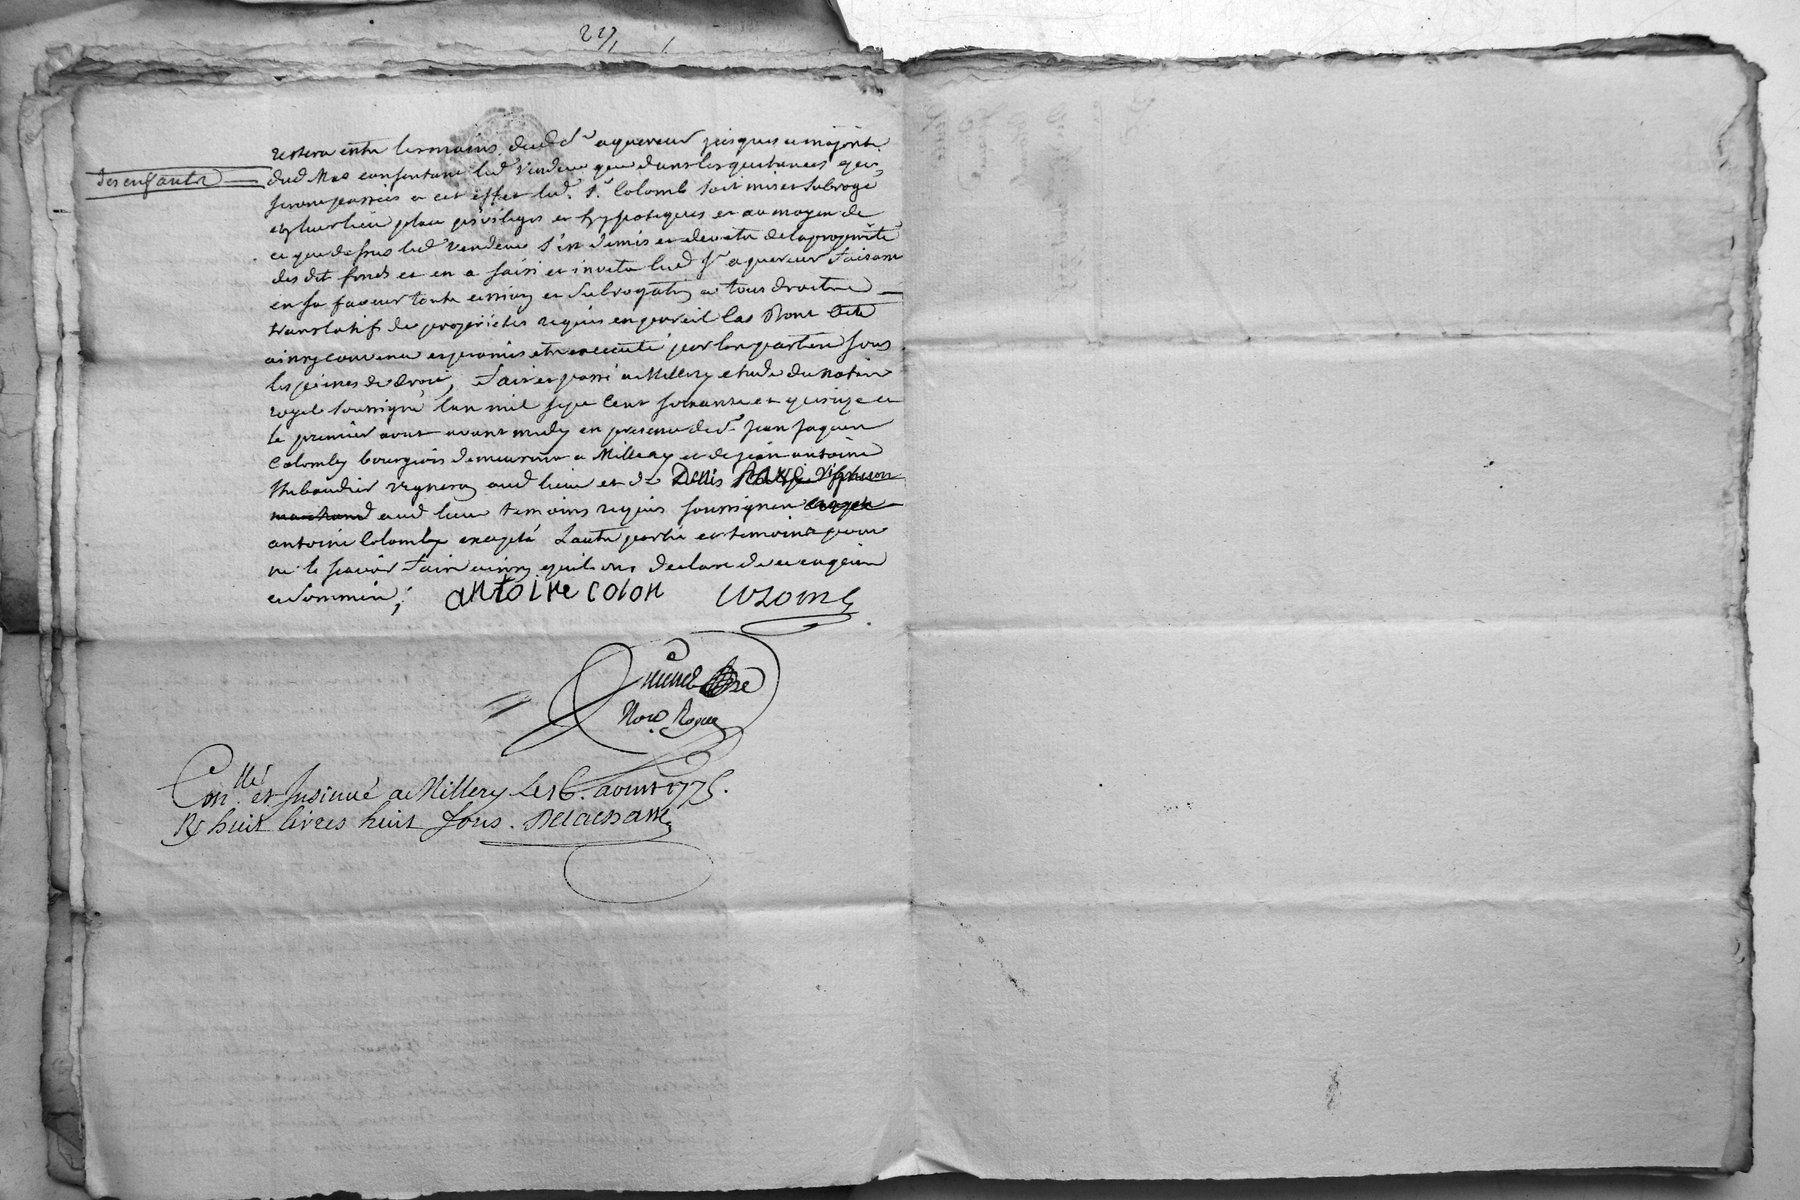 restera entre les mains dud sr aquereur jusques a majorité
des enfants
dud consentant led vendeur que dans les quittances qui
seront passées a cet effet led. Sr. Colomb soit mis et subrogé
et leur lieu place privileges et hypoteques et au moyen de
ce que dessus led vendeur s'est demis et devetu de la proprieté
des dit fonds et en a saisi et investu led sr aquereur faisant
en sa faveur toute cession et subrogation a tous droits
translatifs de proprietés requis en pareil cas Dont acte
ainsy convenu et promis etre executé par les parties sous
les peines de droit, fait et passé a Millery etude du notaire
royal soussigné l'an mil sept cent soixante et quinze et
le premier aout avant midy en presence de sr jean jaques
Colomby bourgeois demeurant a Millery et de jean antoine
thibaudier vigneron aud lieu et de Denis vigneron
marchand aud lieu temoins requis soussignes
antoine Colomby excepté l'autre partie et temoins pour
ne le scavoir faire ainsy quils ont declaré de ce enquis
et sommés;
antoine colon
Nore Royal
Conllé et Insinué a Millery Le 16. aoust 1775.
R huit livres huit sous. Delachasse